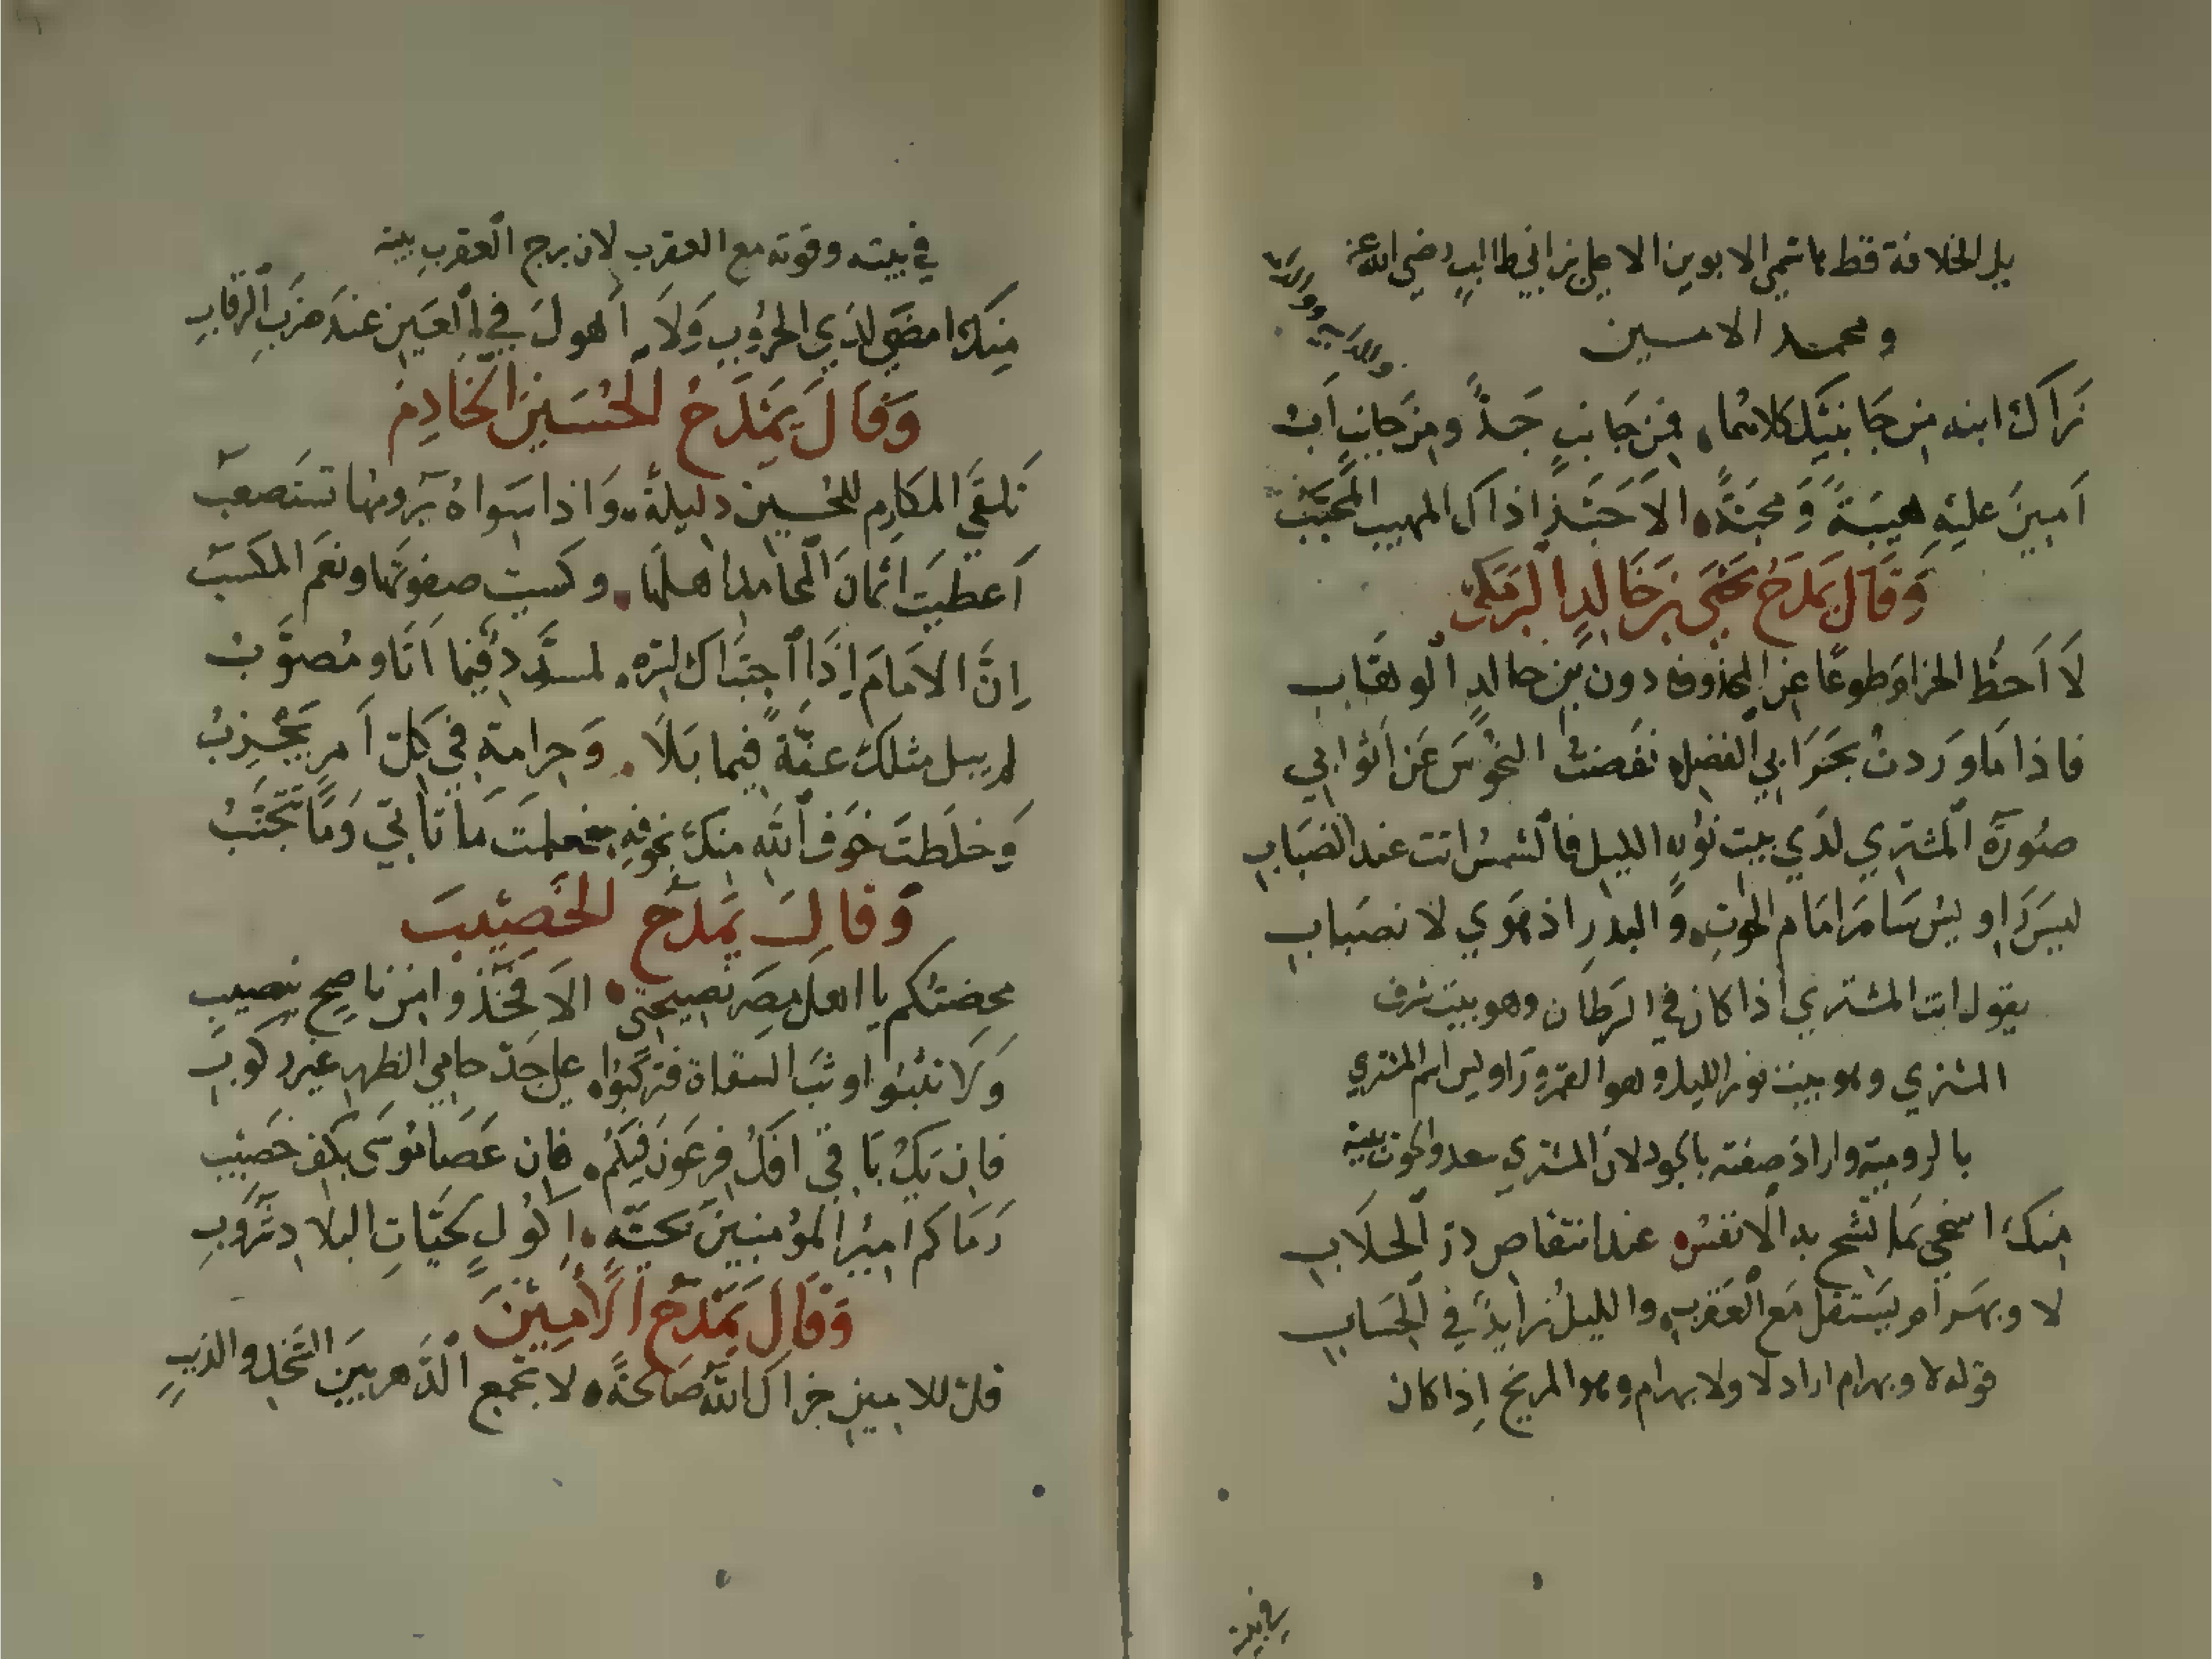 يل الخلافة قط هاشمي الابوين الا علي بن ابي طالب رضي الله عنه
ومحمد الامين
نَراك ابنه من جَانبيك كلاهُما فمن جَانبٍ جَدٌ ومن جَانبٍ اَبُ
اَمينَ عليَهِ هيبَةً وَمحبَةً الاَ حَبَذا ذاك المهيب المُحَبَبُ
وَقَالَ يَمدَحُ يَحيَى بنَ خَالِدٍ البرمَكي
لاَ اَحُط الحزامَ طوعًا عن المحذوف دون بن خالدٍ الوهّاب
فاذا مَا وَردتُ بحَرَ ابي الفضل نفَضتُ النحُوسَ عَن اثوابي
صُورَة المشتري لدَي بيت نُورِ الليل فالشمسُ انت عند الضبَابِ
ليسَ زَاويسُ سَامرَ امَام الحوتِ وَالبدرِ اذ هَوي لانصبَابِ
يقول انت المشتري اذا كان في السرطان وهو بيت شرف
المشتري وهو بيت نور الليل وهو القمر وزاويس اسم المشتري
بالرومية واراد صفته بالجود لان المشتري سعد والحوت بيته
مِنكَ اسخي بمَا تشح به الانفسُ عند انتقاص درّ الحلاَبِ
لا وبهرَامَ يستقل مَع العَقربِ والليلُ زَايدٌ في الحسَابِ
قوله لا وبهرام اراد لا ولا بهرام وهو المريخ اِذا كان
في بيته
في بيته وقوته مع العقرب لان برج العقرب بيته
مِنكَ امضَي لدَي الحرُوبِ وَلاَ اَهولَ في العَين عندَ ضَربِ الرقَابِ
وَقَالَ يَمْدَحُ الحُسَينَ الخَادِم
تَلقَي المكَارِم للحُسين ذليلةً وَاذا سوَاهُ يَرومُها تستَصعبُ
اَعطيَت اثمانَ المحَامد اهلَها وكسبتَ صفوتَها ونعمَ المكسَبُ
اِنَّ الاِمَامَ اِذَا اجتَبَاك لسرّه لمسدَّدٌ فيما اتَاه ومُصوَّبُ
لم يبل مثلك عفّةً فيما بَلاَ وَحزامةٍ في كلّ اَمرٍ يَحزبُ
وَخلَطتَ خَوفَ الله مِنكَ بخوفهِ فعلمتَ مَا تَاتي وَمَا تَتجنَبُ
وَقالَ يَمدَحُ الخَصِيبَ
محضتُكم يا اهل مصَر نصيحتي الاَ فخذوا من ناصِحٍ بنصيبِ
وَلا تثبُوا وثبَ السفاة فتركبُوا علي حَدّ حامي الظهر غير ركُوبِ
فان يَكُ بَاقي افكُ فرعَونَ فيكُم فان عَصَا مُوسَى بكف خَصيب
رَمَاكم اميرُ المُؤمنينَ بحيَّةٍ اكُولٍ لحَيّاتِ البلادِ شَرُوبِ
وَقَالَ يَمْدَحُ الأَمِيْنَ
قل للامين جزاك اللهُ صَالحَةً لا تجمع الدَهر بينَ السَخل والذيبِ